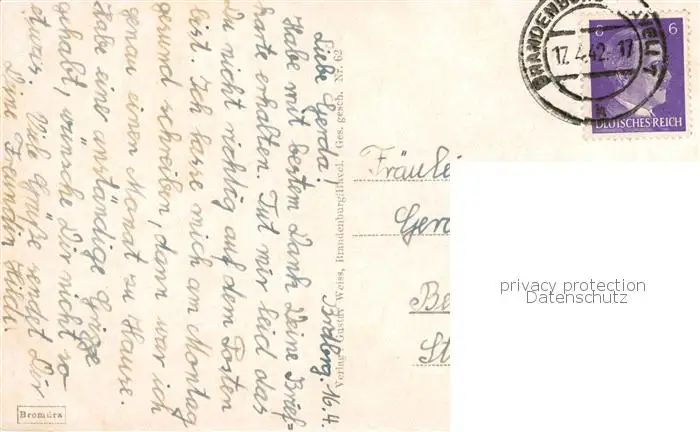 Brdbrg. 16.4.
Liebe Gerda!
Habe mit bestem Dank Deine Brief=
karte erhalten. Tut mir leid das
Du nicht richtig auf dem Posten
bist. Ich lasse mich am Montag
gesund schreiben, dann war ich
genau einen Monat zu Hause.
Habe eine anständige Grippe
gehabt, wünsche Dir nicht so
etwas. Viele Grüße sendet Dir
Deine Freundin Hilde.
Verlag Gustav Weiss, Brandenburg/Havel. Ges. gesch. Nr. 62
Bromüra
BRANDENBURG (HAVEL) 1
17.4.42.17
h
6 6
DEUTSCHES REICH
Fräulei
Gerd
Be
St
privacy protection
Datenschutz